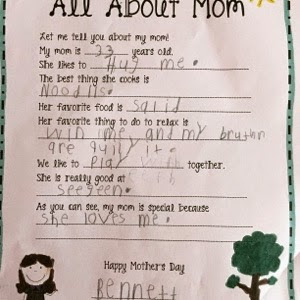 All About Mom
Let me tell you about my mom!
My mom is 33 years old.
She likes to Hug me.
The best thing she cooks is
Noodlls.
Her favorite food is salid
Her favorite thing to do to relax is
win me, and my bruthr
are quiy it.
We like to Play together.
She is really good at
seegeen.
As you can see, my mom is special because
she loves me.
Happy Mother's Day
Bennett